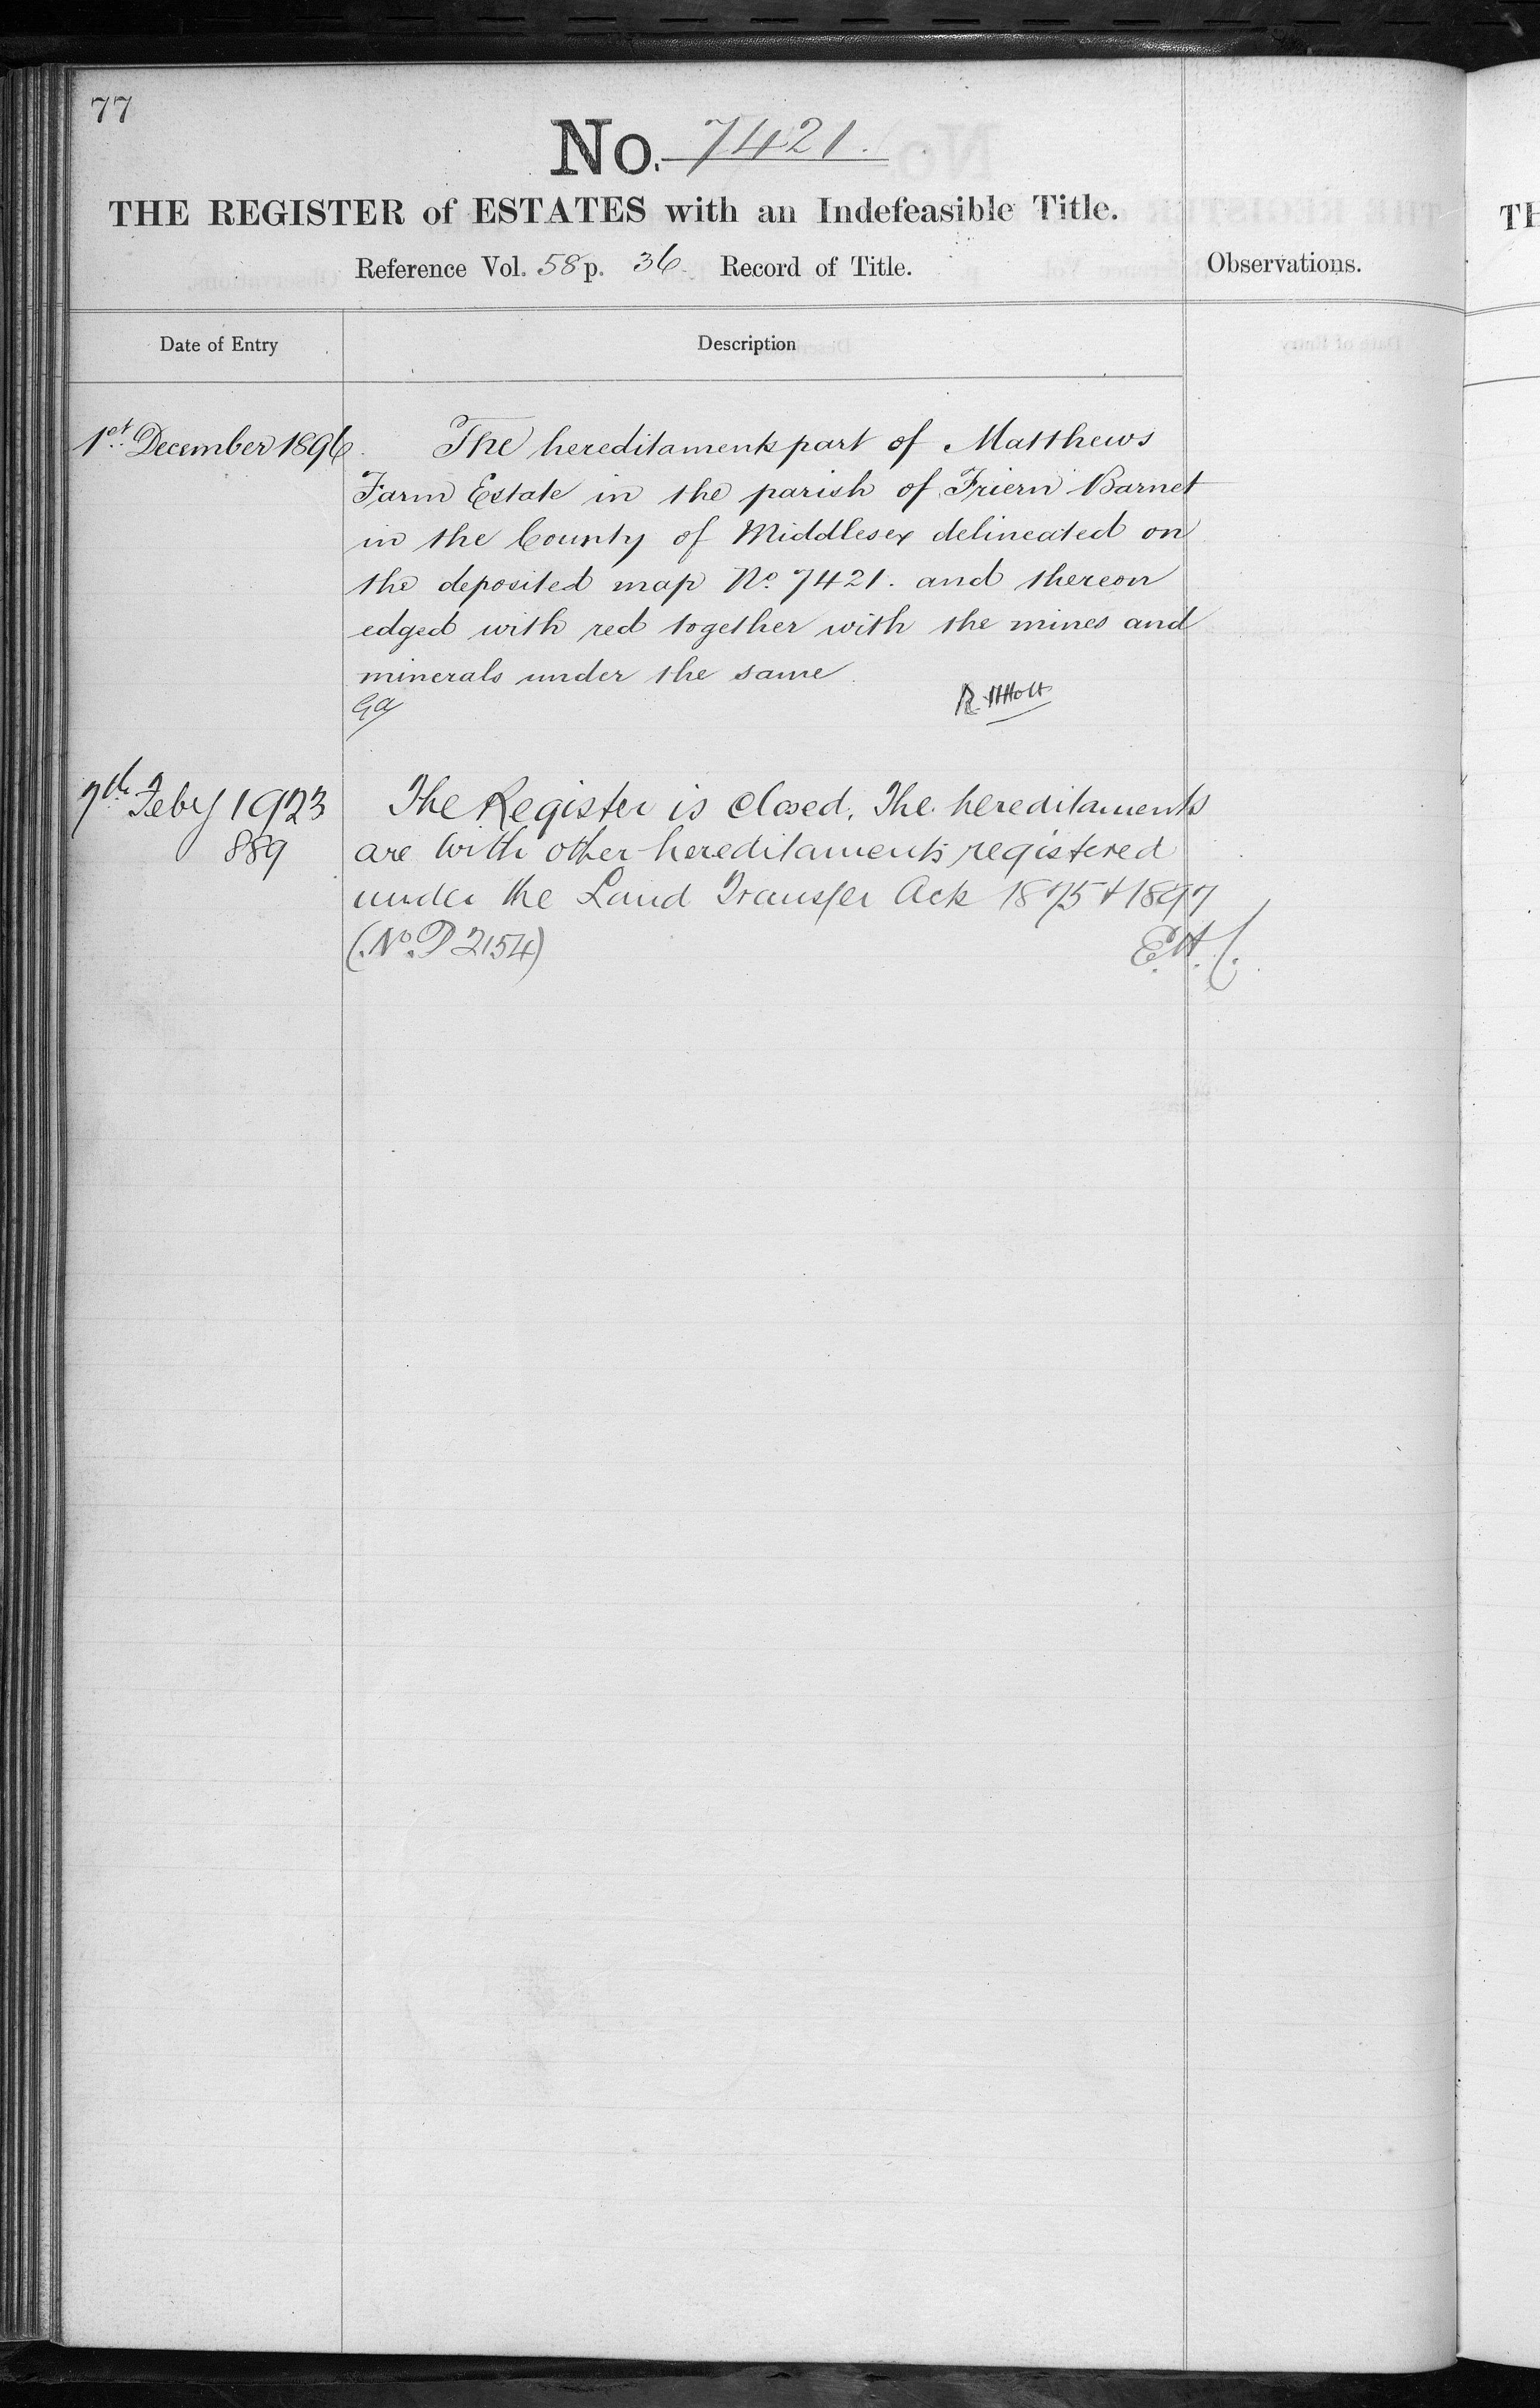 77
No. 7421.
THE REGISTER of ESTATES with an Indefeasible Title.
Reference Vol. 58 p. 36 Record of Title.
Observations.
Date of Entry
Description
1st December 1896.
The hereditaments part of Matthews
Farm Estate in the parish of Friern Barnet
in the County of Middlesex delineated on
the deposited map No. 7421. and thereon
edged with red together with the mines and
minerals under the same
R H Holt
7th Feby 1923
889
The Register is closed. The hereditaments
are with other hereditaments registered
under the Land Transfer Acts 1875 & 1897
(No. P 2154)
TH